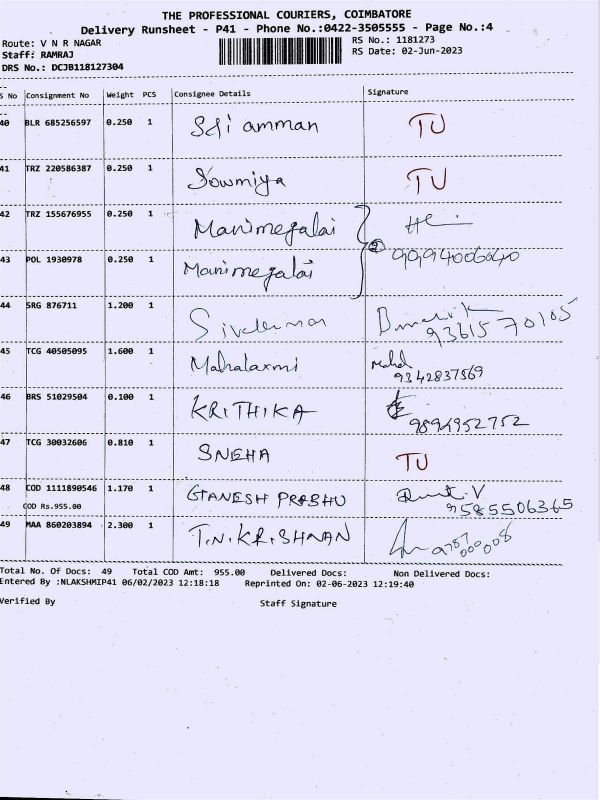 THE PROFESSIONAL COURIERS, COIMBATORE
Delivery Runsheet - P41 - Phone No.:0422-3505555 - Page No.:4
Route: V N R NAGAR RS No.: 1181273
Staff: RAMRAJ RS Date: 02-Jun-2023
DRS No.: DCJB118127304
S No Consignment No Weight PCS Consignee Details Signature
40 BLR 685256597 0.250 1 Sri amman TU
41 TRZ 220586387 0.250 1 Sowmiya TU
42 TRZ 155676955 0.250 1 Manimegalai
43 POL 1930978 0.250 1 Manimegalai
44 SRG 876711 1.200 1 93615 70105
45 TCG 40505095 1.600 1 Mahalaxmi
9342837569
46 BRS 51029504 0.100 1 KRITHIKA
9894952752
47 TCG 30032606 0.810 1 SNEHA TU
48 COD 1111890546 1.170 1 GANESH PRABHU
COD Rs.955.00 9585506365
49 MAA 860203894 2.300 1 T.N.KRISHNAN
Total No. Of Docs: 49 Total COD Amt: 955.00 Delivered Docs: Non Delivered Docs:
Entered By :NLAKSHMIP41 06/02/2023 12:18:18 Reprinted On: 02-06-2023 12:19:40
Verified By Staff Signature